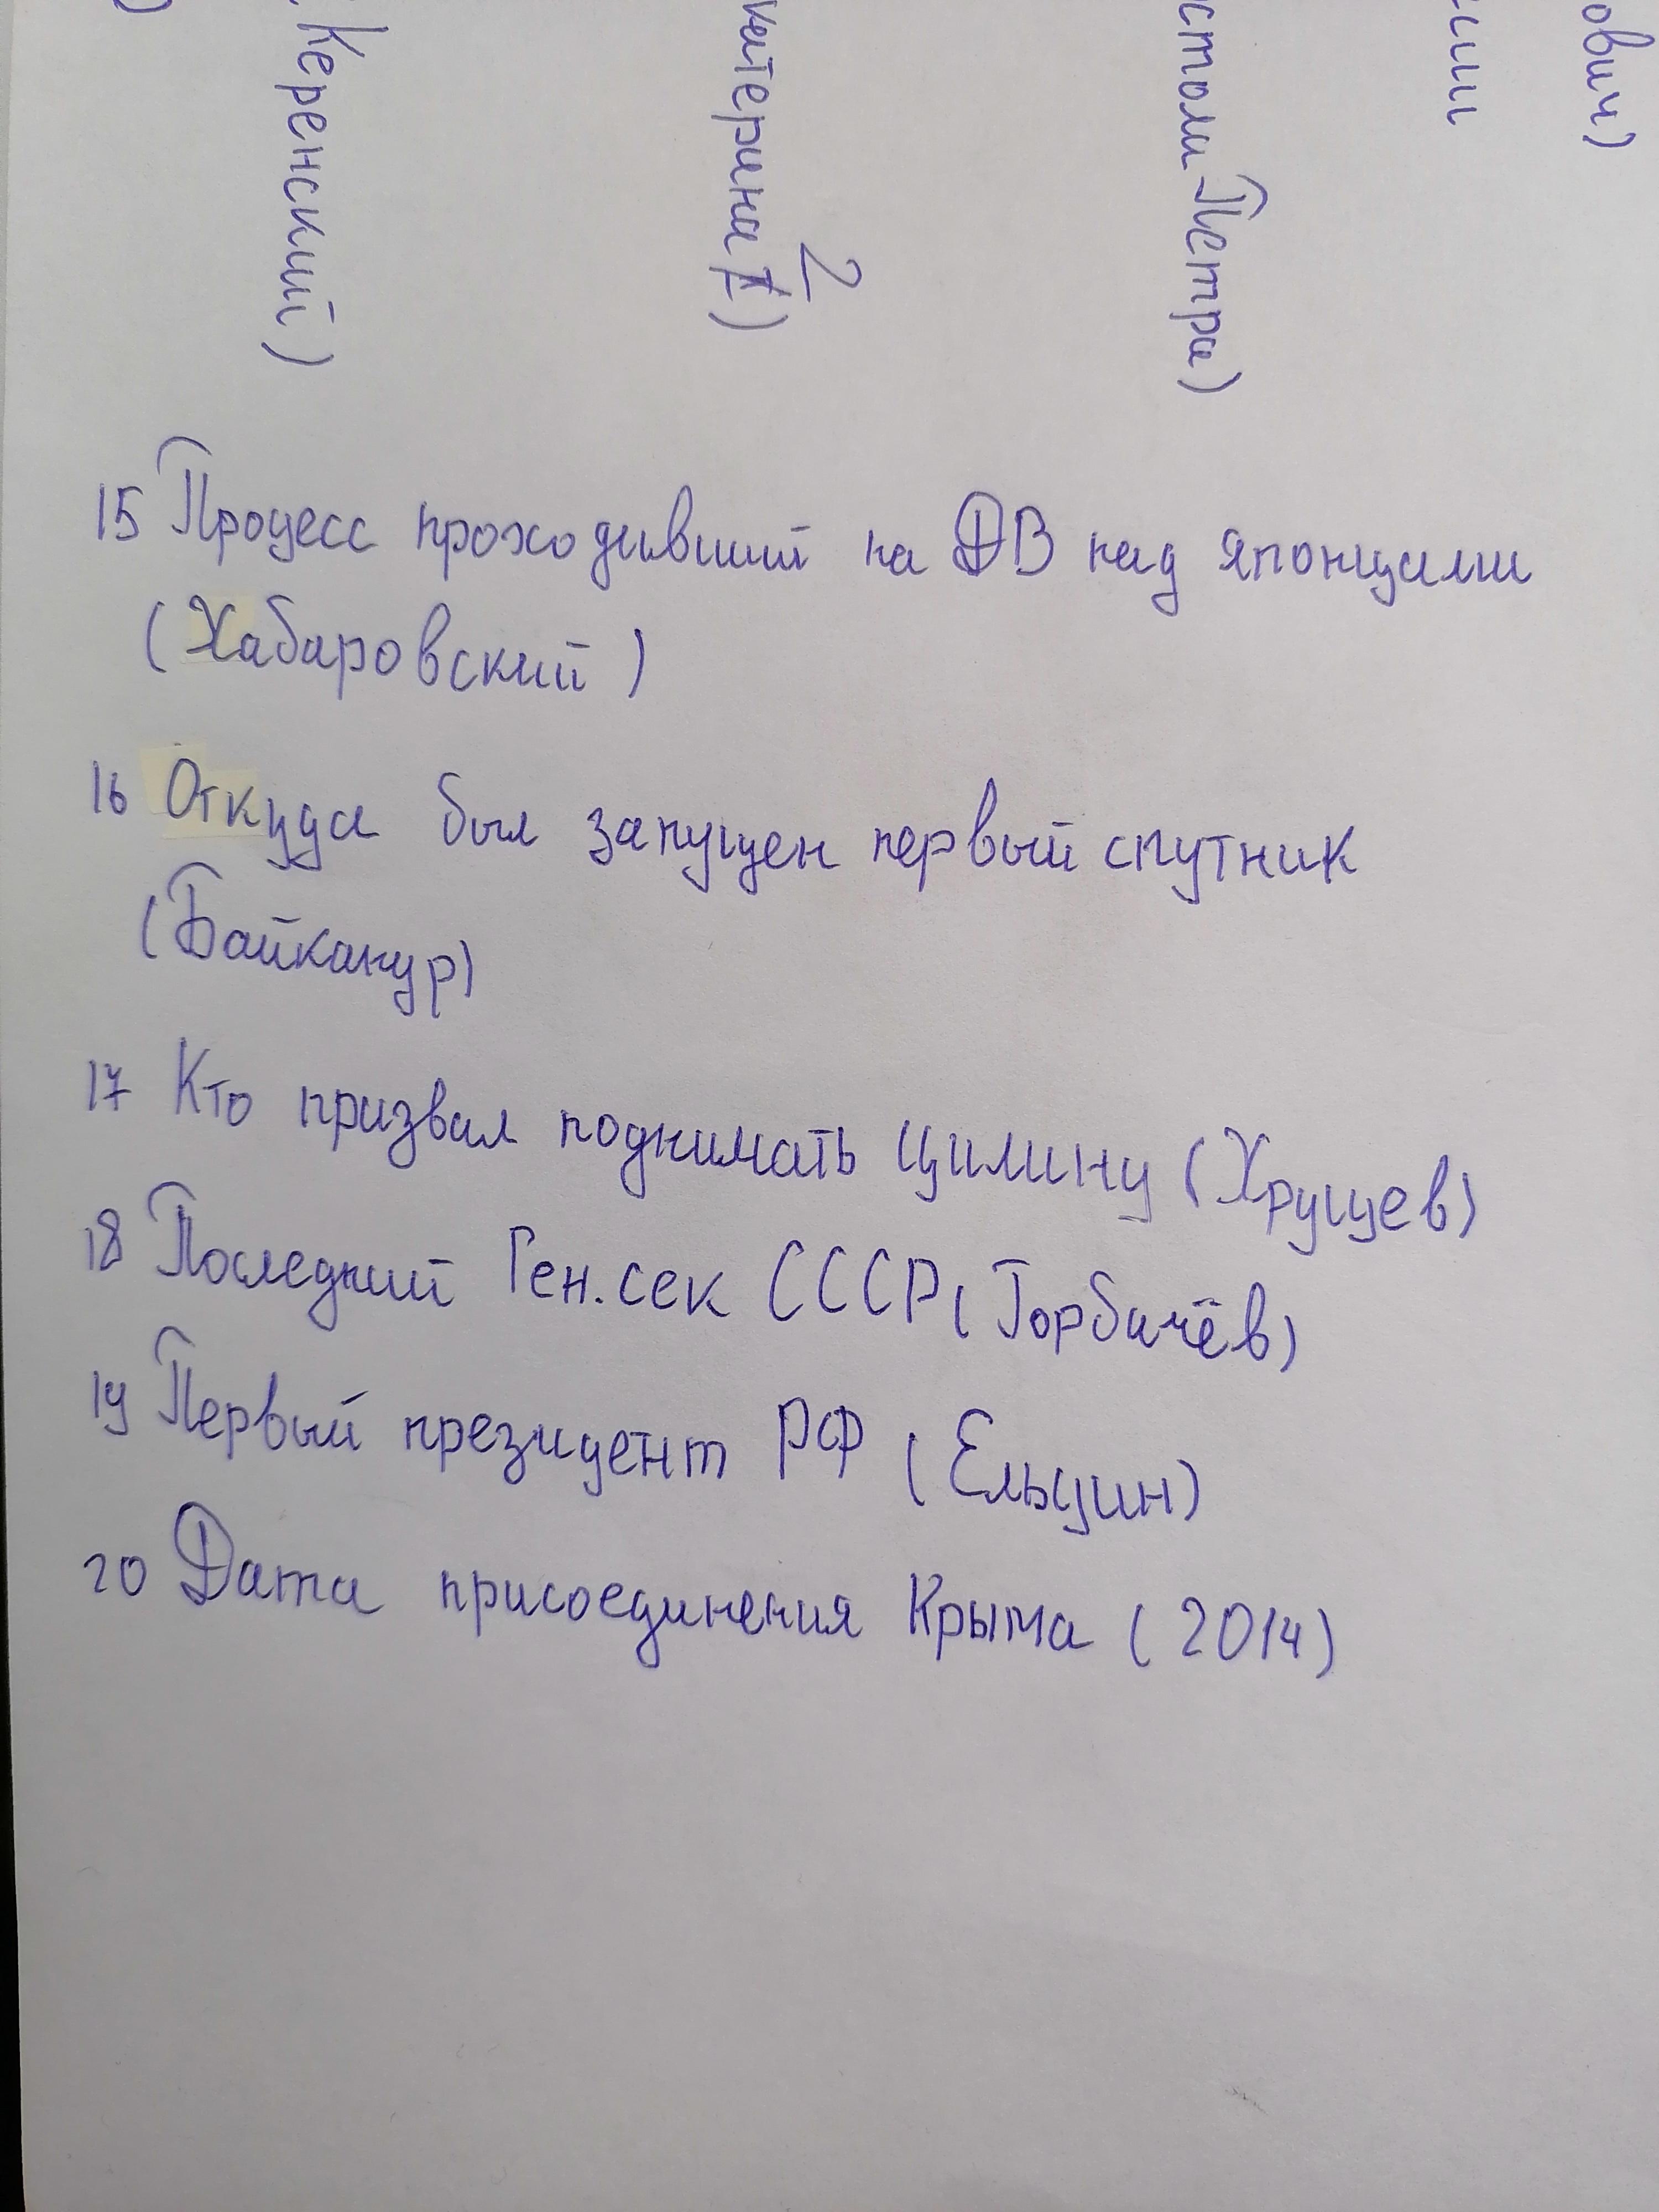 Керенский)
катерина 1)
2
Петра)
ович)
15 Процесс проходивший на ДВ над японцами
(Хабаровский)
16 Откуда был запущен первый спутник
(Байканур)
17 Кто призвал поднимать цилину (Хрущев)
18 Последний Ген.сек СССР (Горбачёв)
19 Первый президент РФ (Ельцин)
20 Дата присоединения Крыма (2014)